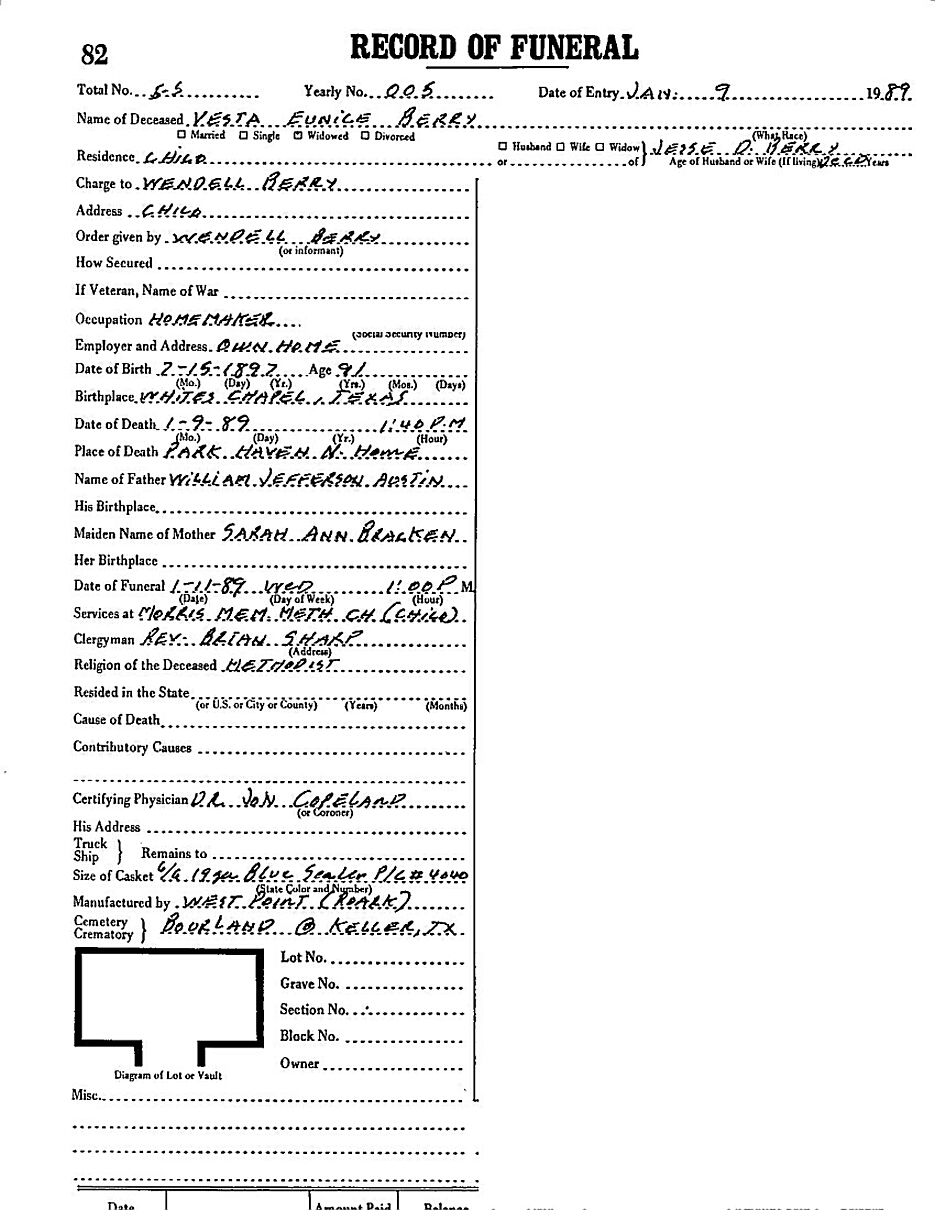 82
RECORD OF FUNERAL
Total No. 5-5 Yearly No. 005 Date of Entry JAN. 9 1989
Name of Deceased VESTA EUNICE BERRY
☐ Married ☐ Single ☑ Widowed ☐ Divorced (What Race)
Residence CHICO ☐ Husband ☐ Wife ☐ Widow or of } JESSE D. BERRY Age of Husband or Wife (If living) DECD Years
Charge to WENDELL BERRY
Address CHICO
Order given by WENDELL BERRY
(or informant)
How Secured
If Veteran, Name of War
Occupation HOMEMAKER
(Social Security Number)
Employer and Address OWN HOME
Date of Birth 7-15-1897 Age 91
(Mo.) (Day) (Yr.) (Yrs.) (Mos.) (Days)
Birthplace WHITES CHAPEL, TEXAS
Date of Death 1-9-89 1:40 P.M
(Mo.) (Day) (Yr.) (Hour)
Place of Death PARK HAVEN N. HOME
Name of Father WILLIAM JEFFERSON AUSTIN
His Birthplace
Maiden Name of Mother SARAH ANN BRACKEN
Her Birthplace
Date of Funeral 1-11-89 WED 1:00 P M
(Date) (Day of Week) (Hour)
Services at MORRIS MEM. METH. CH. (CHICO)
Clergyman REV. BRIAN SHARP
(Address)
Religion of the Deceased METHODIST
Resided in the State
(or U.S. or City or County) (Years) (Months)
Cause of Death
Contributory Causes
Certifying Physician DR. JON COPELAND
(or Coroner)
His Address
Truck Ship } Remains to
Size of Casket 6/6 19 ga Blue Sealer P/C # 4040
(State Color and Number)
Manufactured by WEST POINT (ROARK)
Cemetery Crematory } BOURLAND @ KELLER, TX
Lot No.
Grave No.
Section No.
Block No.
Owner
Diagram of Lot or Vault
Misc.
Date Amount Paid Balance